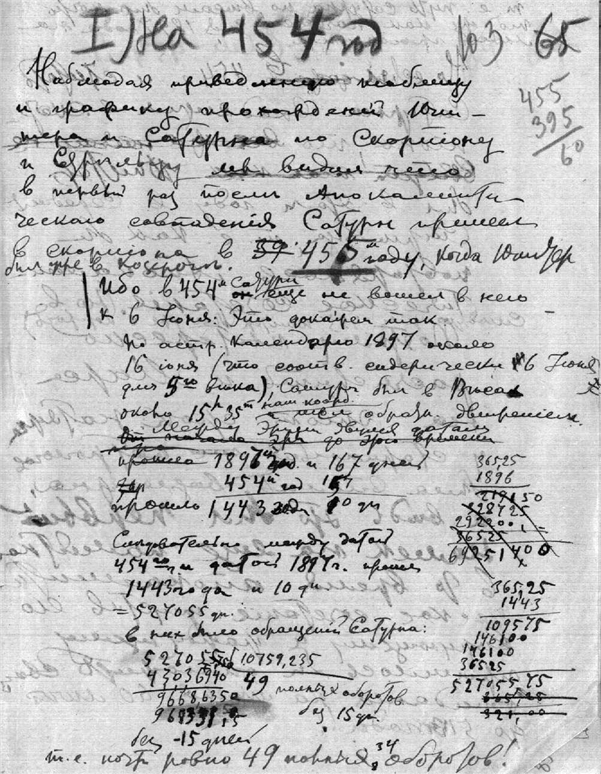 I) На 454 год
103 65
455
395
60
Наблюдая приведенную таблицу
и графику прохождений Юпи-
тера и Сатурна по Скорпиону
и Стрельцу мы видим, что
в первый раз после Апокалипти-
ческого совпадения Сатурн пришел
в скорпиона в 39 455м году, когда Юпитер
был уже в Козероге.
Ибо в 454м Сатурн он еще не вошел в него
к 6 Июня: Это докажем так
По астр. Календарю 1897 около
16 июня (что соотв. сидерически 6 Июня
для 5го века) Сатурн был в Весах
около 15h 35m наш коорд. и шел образн. движением.
Между этими двумя датами
до этого времени
прошло 1896 год. и 167 дней
454 год 157
прошло 1443 год 10 дн
Следовательно между датой
454 г. и датой 1897 г. прошло
1443 года и 10 дн
= 527055 дн.
в них было обращений Сатурна:
527055 | 10759,235
43036940 49 полных оборотов
96686350 без 15 дн
96833115
без -15 дней
т.е. почти ровно 49 полных оборотов!
365,25
1896
219150
328725
292200
36525
69251400
365,25
1443
109575
146100
146100
36525
52705575